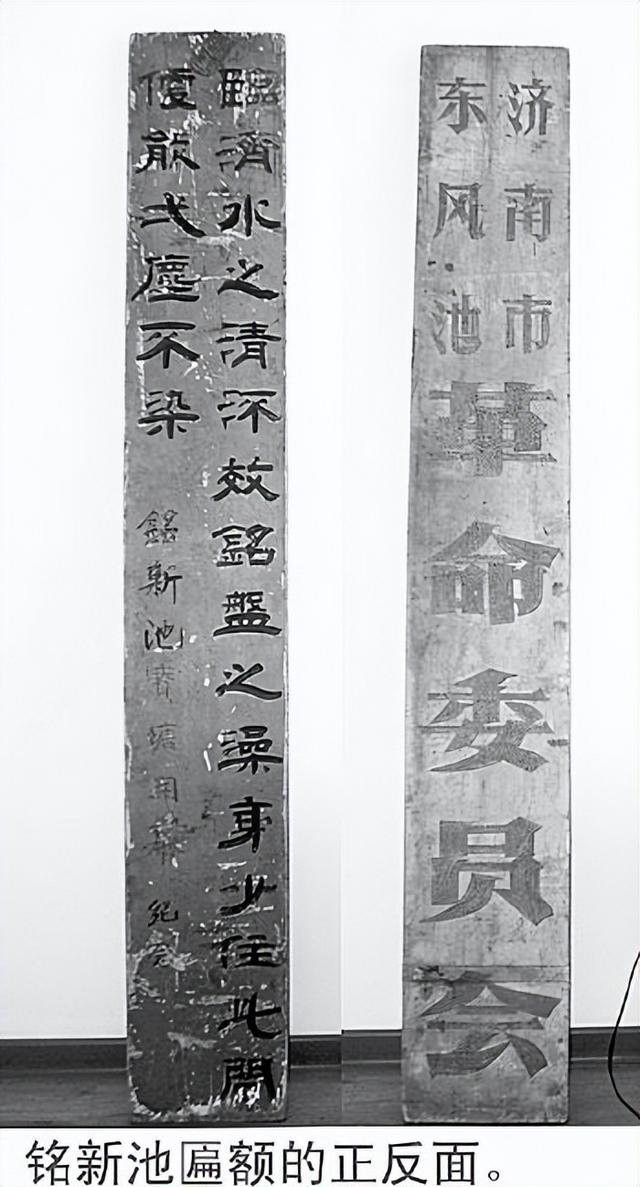 臨濟水之清效銘盤之澡身少住此間
便弌塵不染
銘新池
济南市
东风池
革命委员会
铭新池匾额的正反面。